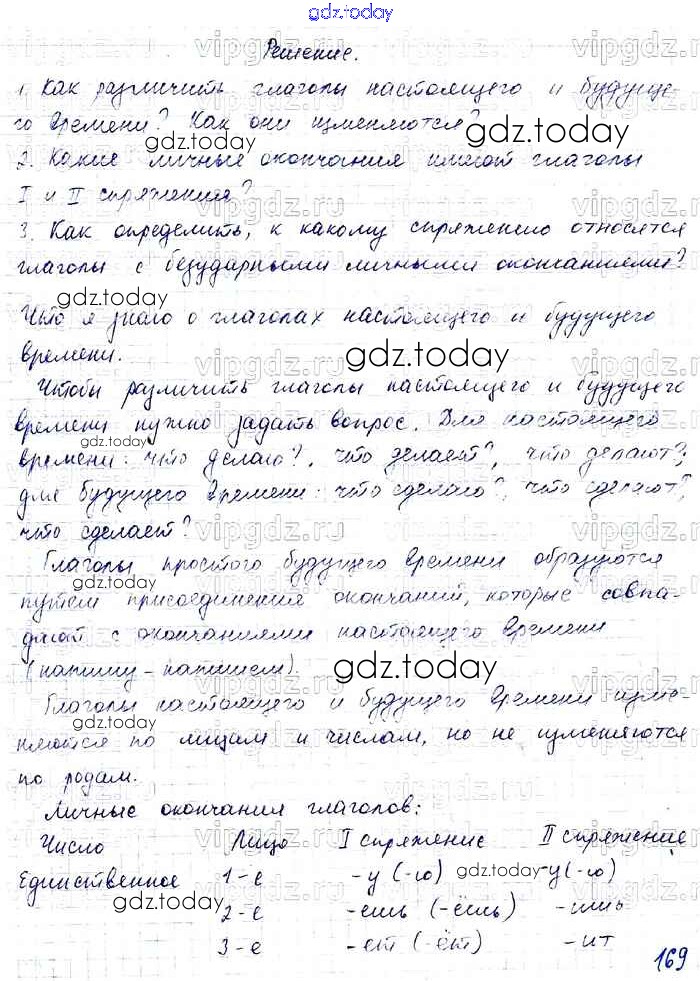 gdz.today
Решение.
1. Как различить глаголы настоящего и будуще-
го времени? Как они изменяются?
gdz.today
gdz.today
2. Какие личные окончания имеют глаголы
I и II спряжения?
3. Как определить, к какому спряжению относятся
глаголы с безударными личными окончаниями?
gdz.today
Что я знаю о глаголах настоящего и будущего
времени.
gdz.today
Чтобы различить глаголы настоящего и будущего
времени нужно задать вопрос. Для настоящего
gdz.today
времени: что делаю?, что делает?, что делают?;
для будущего времени: что сделаю?, что сделают?,
что сделает?
Глаголы простого будущего времени образуются
gdz.today
путем присоединения окончаний, которые совпа-
дают с окончаниями настоящего времени
(напишу - напишем).
gdz.today
Глаголы настоящего и будущего времени изме-
gdz.today
няются по лицам и числам, но не изменяются
по родам.
Личные окончания глаголов:
Число Лицо I спряжение II спряжение
Единственное 1-е -у (-ю) gdz.today -у (-ю)
gdz.today 2-е -ешь (-ёшь) -ишь
3-е -ет (-ёт) -ит
gdz.today
169
vipgdz.ru